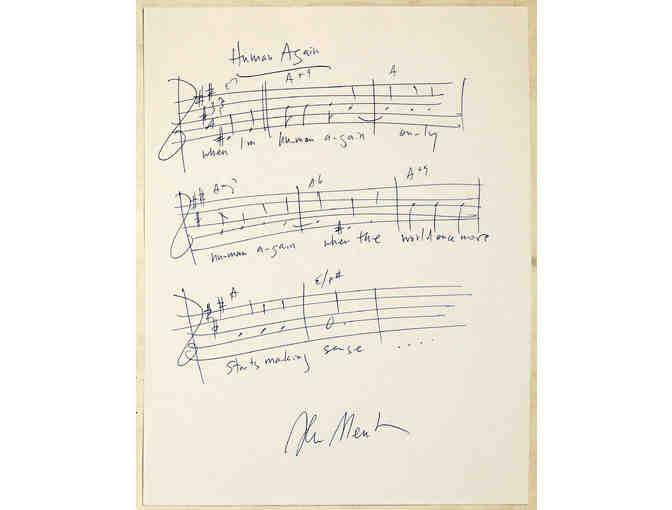 Human Again
E7 A+9 A
3
4
when I'm human a-gain on-ly
A-7 A6 A+9
human a-gain when the world once more
A E/F#
starts making sense ....